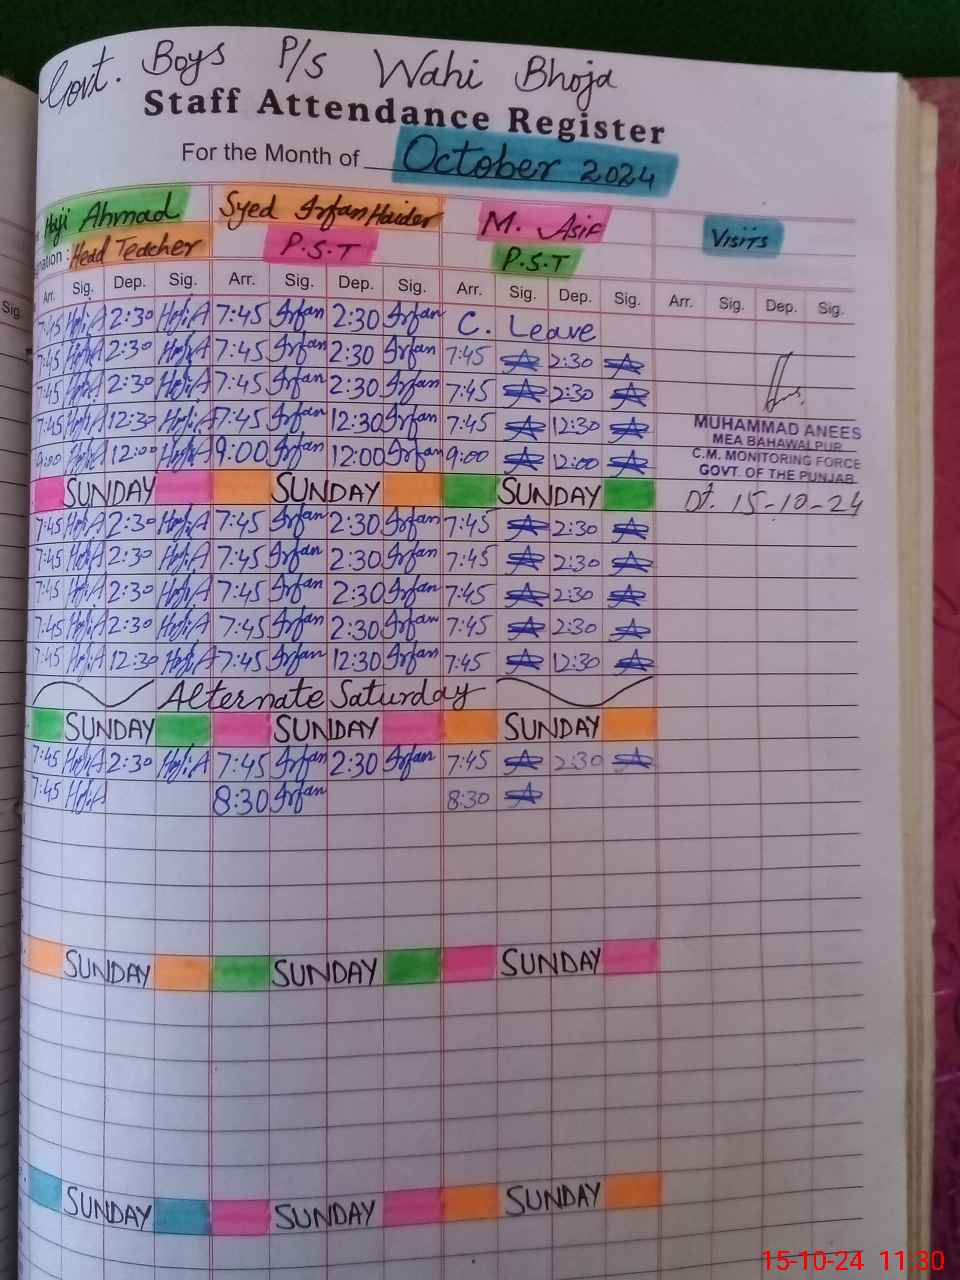 Govt. Boys P/S Wahi Bhoja
Staff Attendance Register
For the Month of October 2024
Haji Ahmad Syed Irfan Haider M. Asif VISITS
nation : Head Teacher P.S.T P.S.T
Arr. Sig. Dep. Sig. Arr. Sig. Dep. Sig. Arr. Sig. Dep. Sig. Arr. Sig. Dep. Sig.
Sig.
7:45 Haji.A 2:30 Haji.A 7:45 Irfan 2:30 Irfan C. Leave
7:45 Haji.A 2:30 Haji.A 7:45 Irfan 2:30 Irfan 7:45 2:30
7:45 Haji.A 2:30 Haji.A 7:45 Irfan 2:30 Irfan 7:45 2:30
7:45 Haji.A 12:30 Haji.A 7:45 Irfan 12:30 Irfan 7:45 12:30
MUHAMMAD ANEES
MEA BAHAWALPUR
9:00 Haji.A 12:00 Haji.A 9:00 Irfan 12:00 Irfan 9:00 12:00
C.M. MONITORING FORCE
GOVT. OF THE PUNJAB
SUNDAY SUNDAY SUNDAY Dt. 15-10-24
7:45 Haji.A 2:30 Haji.A 7:45 Irfan 2:30 Irfan 7:45 2:30
7:45 Haji.A 2:30 Haji.A 7:45 Irfan 2:30 Irfan 7:45 2:30
7:45 Haji.A 2:30 Haji.A 7:45 Irfan 2:30 Irfan 7:45 2:30
7:45 Haji.A 2:30 Haji.A 7:45 Irfan 2:30 Irfan 7:45 2:30
7:45 Haji.A 12:30 Haji.A 7:45 Irfan 12:30 Irfan 7:45 12:30
Alternate Saturday
SUNDAY SUNDAY SUNDAY
7:45 Haji.A 2:30 Haji.A 7:45 Irfan 2:30 Irfan 7:45 2:30
7:45 Haji.A 8:30 Irfan 8:30
SUNDAY SUNDAY SUNDAY
SUNDAY SUNDAY SUNDAY
15-10-24 11:30